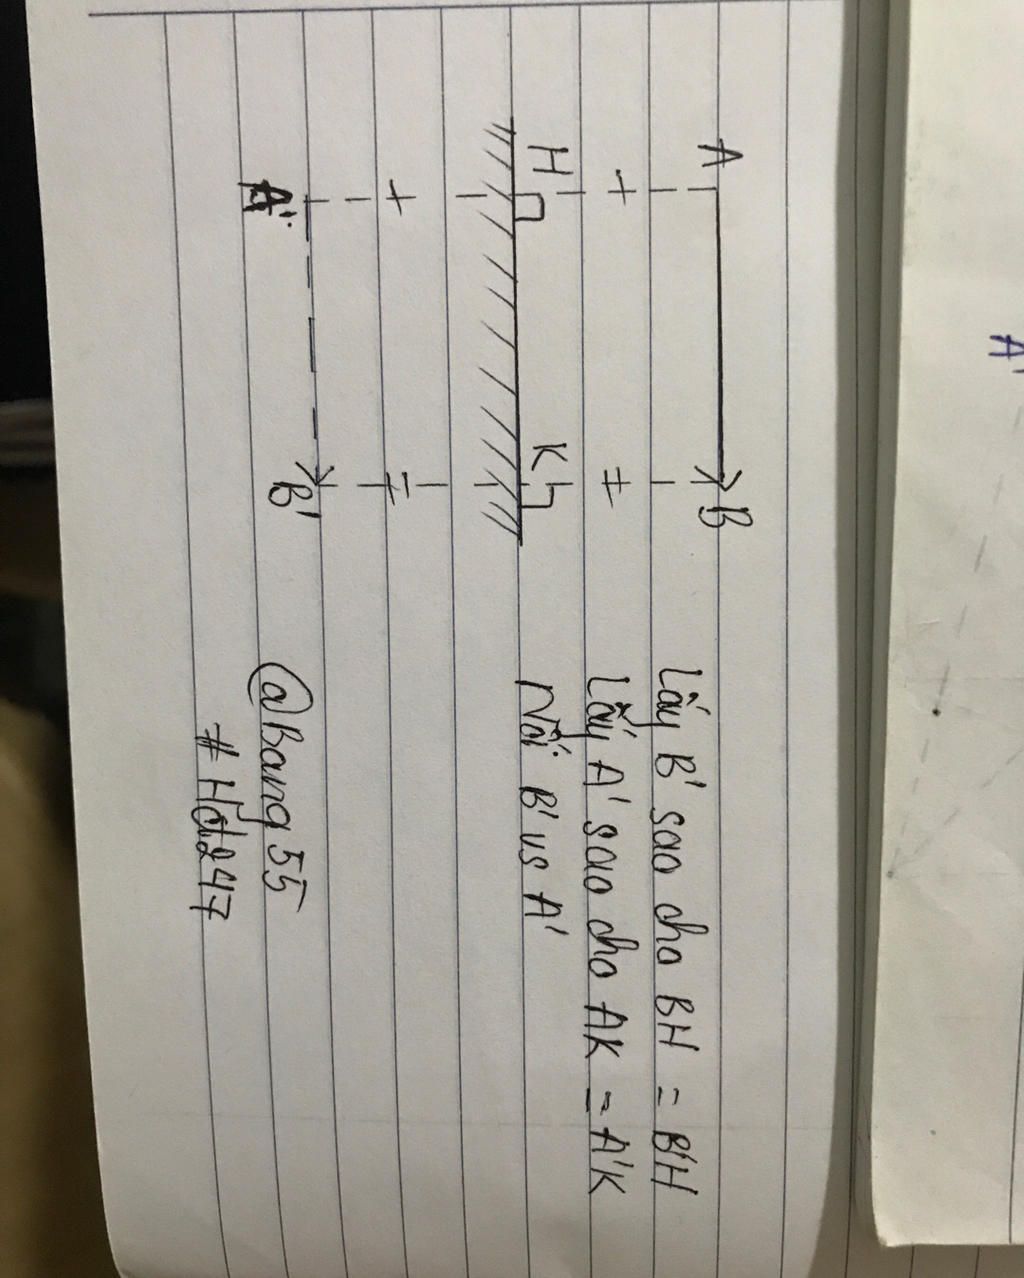 A
B
H
K
A'
B'
Lấy B' sao cho BH = B'H
Lấy A' sao cho AK = A'K
Nối B' vs A'
@Bang55
#Hd247
A'